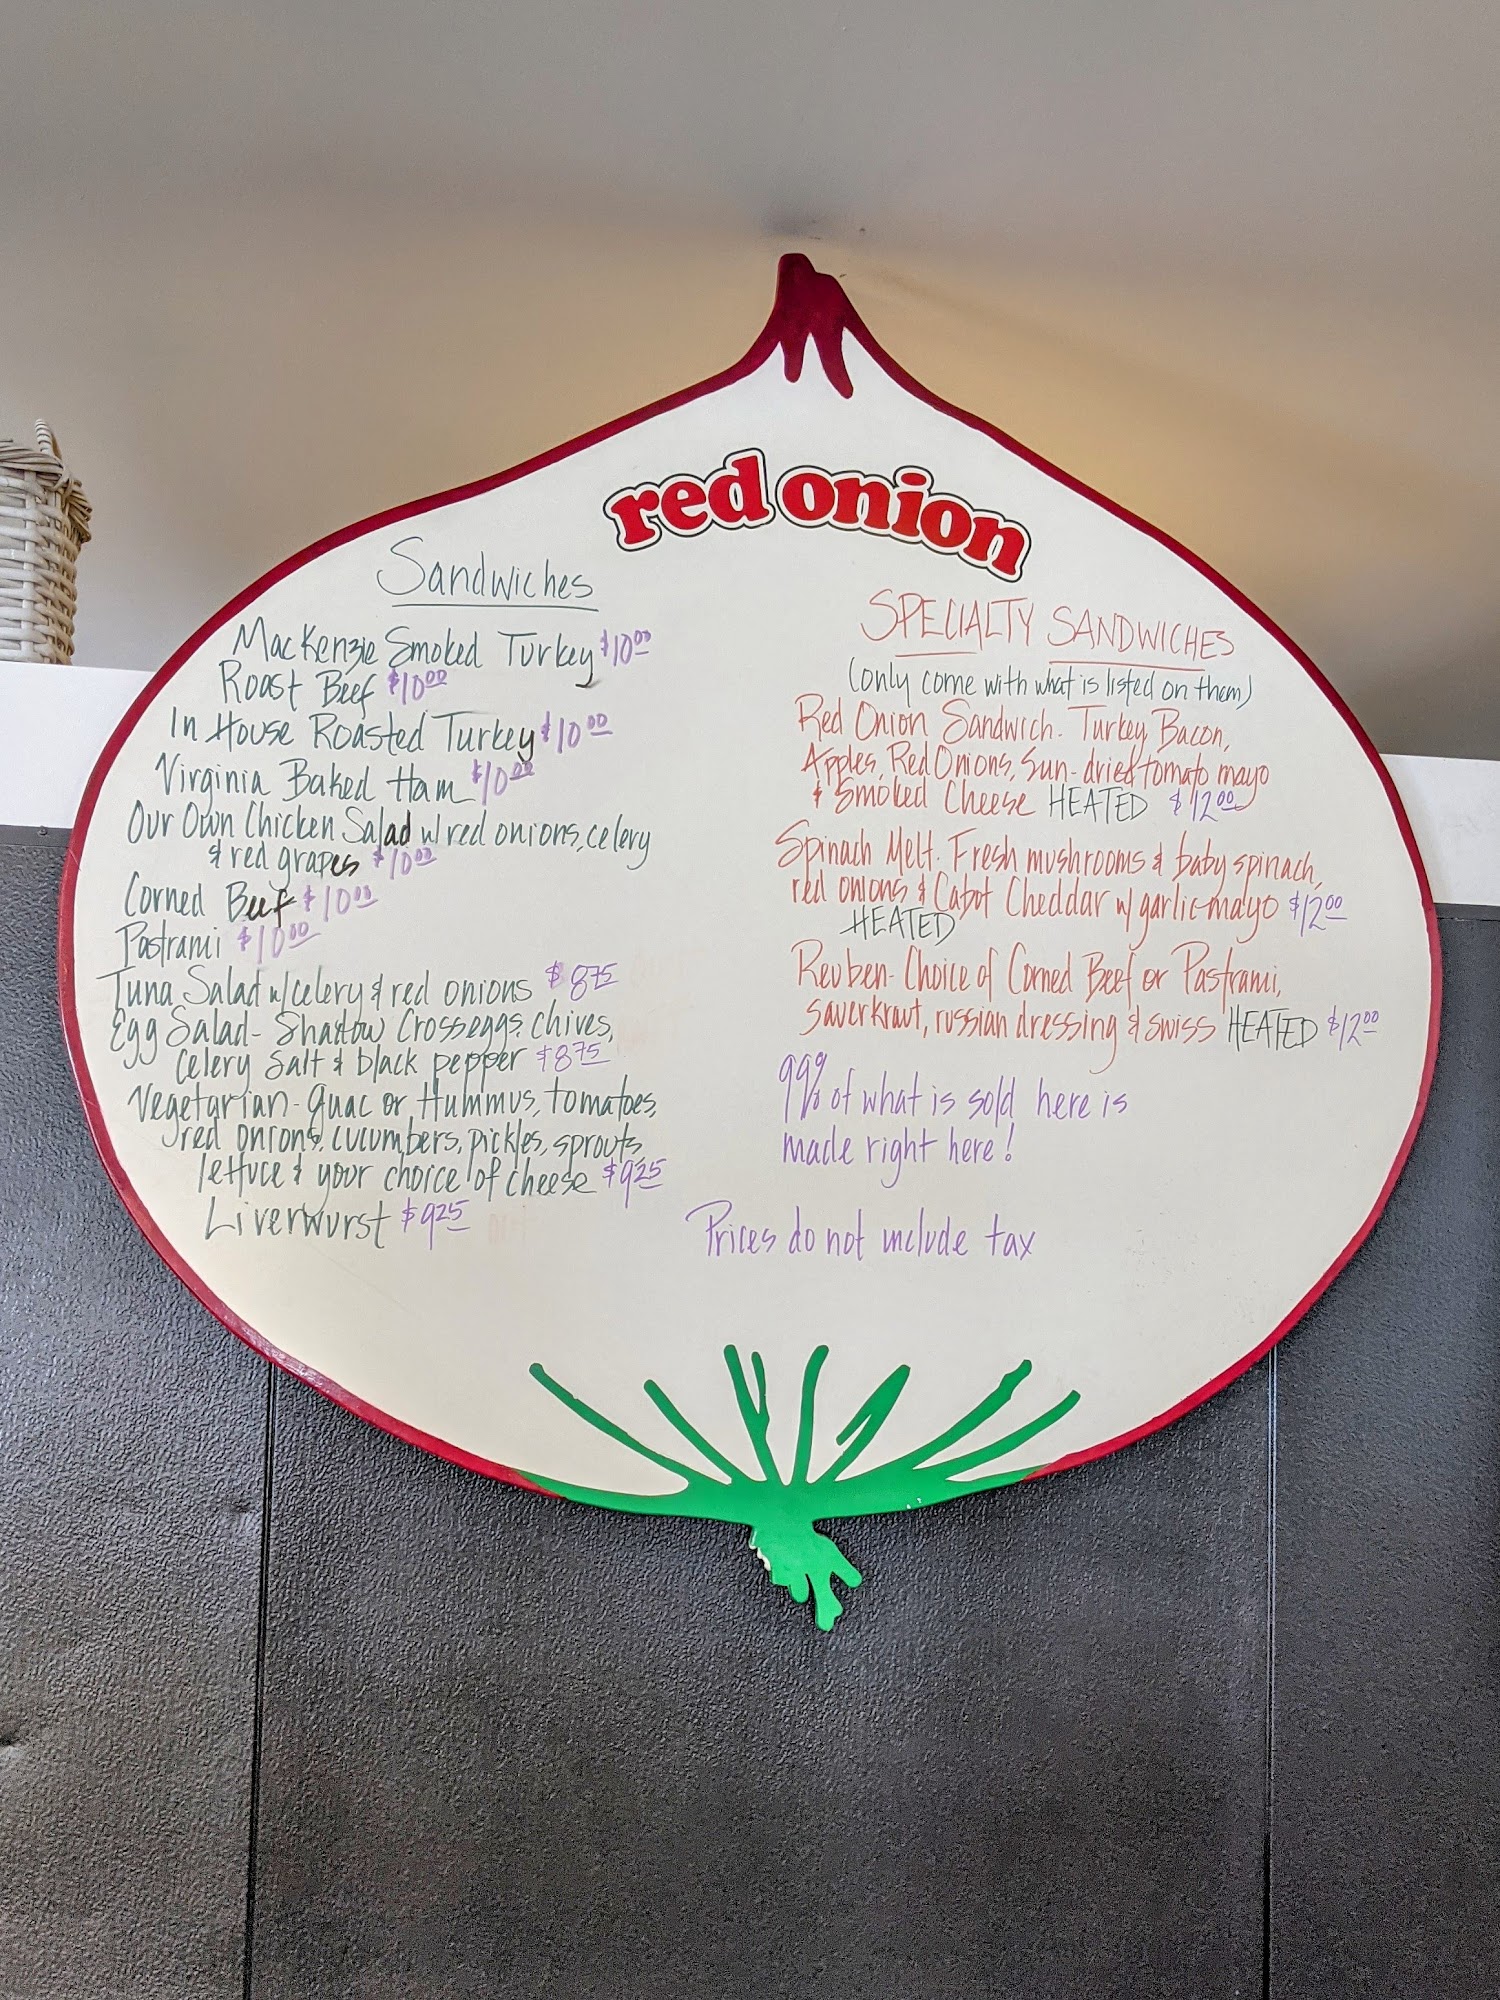 red onion
Sandwiches
MacKenzie Smoked Turkey $10.00
Roast Beef $10.00
In House Roasted Turkey $10.00
Virginia Baked Ham $10.00
Our Own Chicken Salad w/ red onions, celery
& red grapes $10.00
Corned Beef $10.00
Pastrami $10.00
Tuna Salad w/celery & red onions $8.75
Egg Salad - Shadow Cross eggs, chives,
celery salt & black pepper $8.75
Vegetarian - Guac or Hummus, tomatoes,
red onions, cucumbers, pickles, sprouts,
lettuce & your choice of cheese $9.25
Liverwurst $9.25
SPECIALTY SANDWICHES
(only come with what is listed on them)
Red Onion Sandwich. Turkey, Bacon,
Apples, Red Onions, Sun-dried tomato mayo
& Smoked Cheese HEATED $12.00
Spinach Melt. Fresh mushrooms & baby spinach,
red onions & Cabot Cheddar w/ garlic-mayo $12.00
HEATED
Reuben - Choice of Corned Beef or Pastrami,
sauerkraut, russian dressing & swiss HEATED $12.00
99% of what is sold here is
made right here!
Prices do not include tax